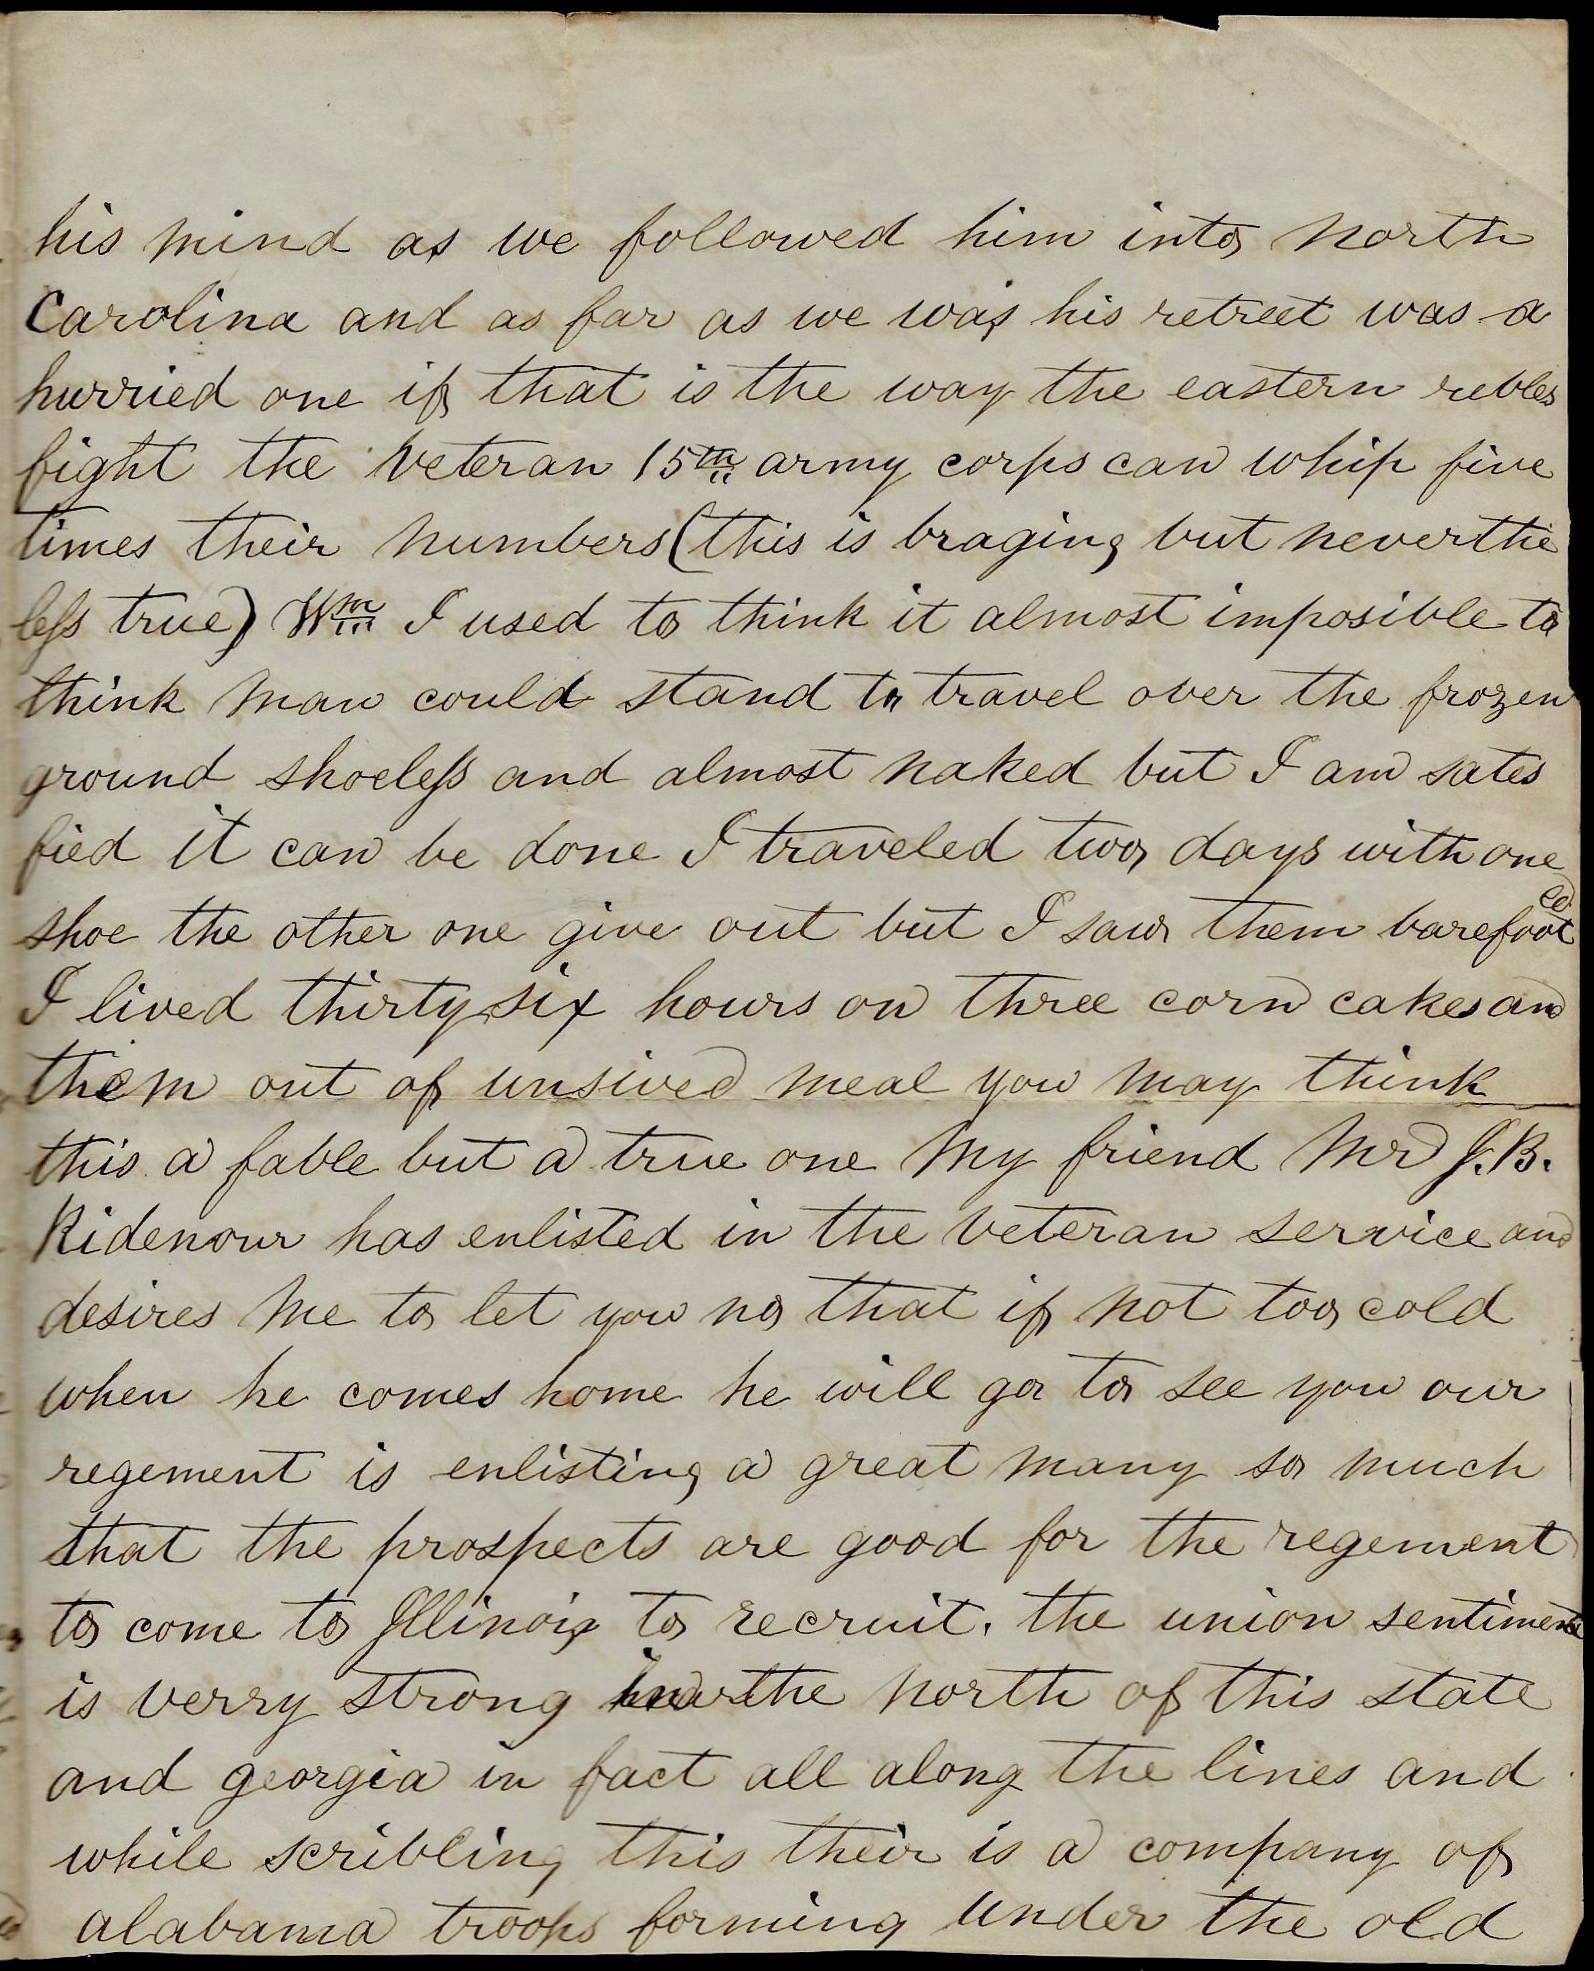 his mind as we followed him into North
Carolina and as far as we was his retreet was a
hurried one if that is the way the eastern rebles
fight the veteran 15th army corps can whip five
times their numbers (this is braging but neverthe
less true) Wm I used to think it almost imposible to
think man could stand to travel over the frozen
ground shoeless and almost naked but I am satis
fied it can be done I traveled two days with one
shoe the other one give out but I saw them barefooted
I lived thirty six hours on three corn cakes and
them out of unsived meal you may think
this a fable but a true one My friend Mr J. B.
Ridenour has enlisted in the veteran service and
desires me to let you no that if not too cold
when he comes home he will go to see you our
regement is enlisting a great many so much
that the prospects are good for the regement
to come to Illinois to recruit. the union sentiment
is verry strong in the north of this state
and georgia in fact all along the lines and
while scribling this their is a company of
alabama troops forming under the old